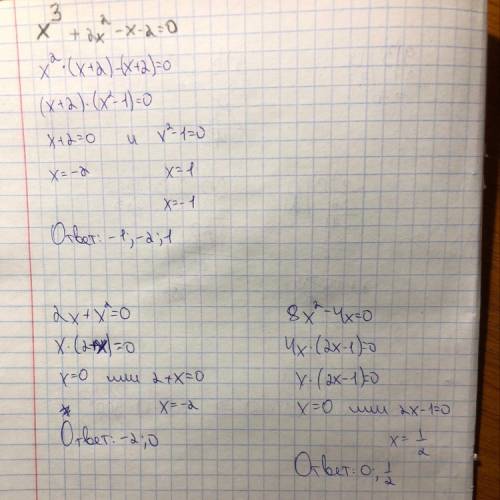 x³ + 2x² - x - 2 = 0
x² · (x+2) - (x+2) = 0
(x+2) · (x² - 1) = 0
x+2=0 и x² - 1=0
x = -2 x = 1
x = -1
Ответ: -1; -2; 1
2x + x² = 0
x · (2+x) = 0
x=0 или 2+x=0
x = -2
Ответ: -2; 0
8x² - 4x = 0
4x · (2x-1) = 0
x · (2x-1) = 0
x=0 или 2x-1=0
x = 1/2
Ответ: 0; 1/2